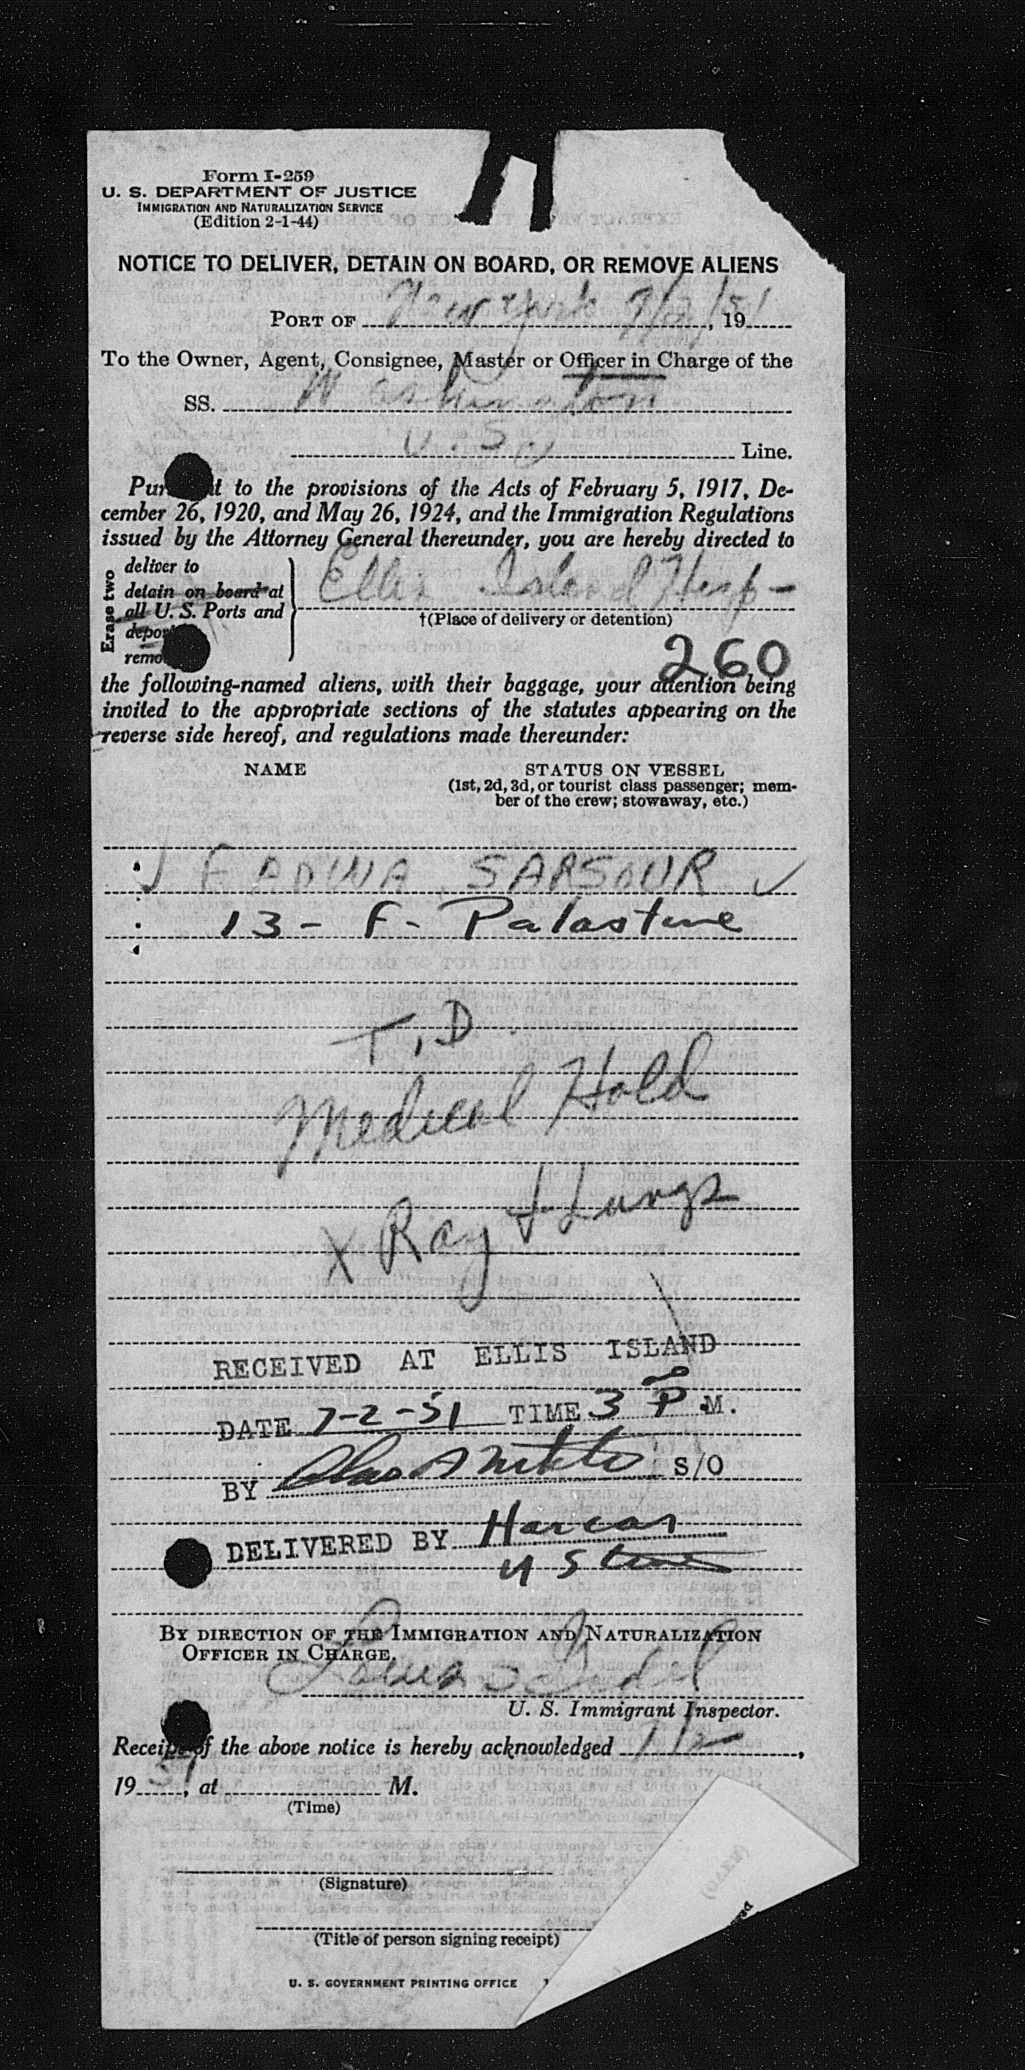 Form I-259
U. S. DEPARTMENT OF JUSTICE
IMMIGRATION AND NATURALIZATION SERVICE
(Edition 2-1-44)
NOTICE TO DELIVER, DETAIN ON BOARD, OR REMOVE ALIENS
PORT OF New York 7/2/51, 19
To the Owner, Agent, Consignee, Master or Officer in Charge of the
SS. Washington
U. S. Line.
to the provisions of the Acts of February 5, 1917, De-
cember 26, 1920, and May 26, 1924, and the Immigration Regulations
issued by the Attorney General thereunder, you are hereby directed to
Erase two
deliver to
detain on board at
all U. S. Ports and
depor
remo
Ellis Island Hosp-
†(Place of delivery or detention)
260
the following-named aliens, with their baggage, your attention being
invited to the appropriate sections of the statutes appearing on the
reverse side hereof, and regulations made thereunder:
NAME
STATUS ON VESSEL
(1st, 2d, 3d, or tourist class passenger; mem-
ber of the crew; stowaway, etc.)
FADWA SARSOUR
13 - F - Palastine
T.D.
Medical Hold
X Ray Lungs
RECEIVED AT ELLIS ISLAND
DATE 7-2-51 TIME 3 P.M.
BY S/O
DELIVERED BY
U S
BY DIRECTION OF THE IMMIGRATION AND NATURALIZATION
OFFICER IN CHARGE.
U. S. Immigrant Inspector.
Receipt of the above notice is hereby acknowledged 7/2,
19 51, at M.
(Time)
(Signature)
(Title of person signing receipt)
U. S. GOVERNMENT PRINTING OFFICE